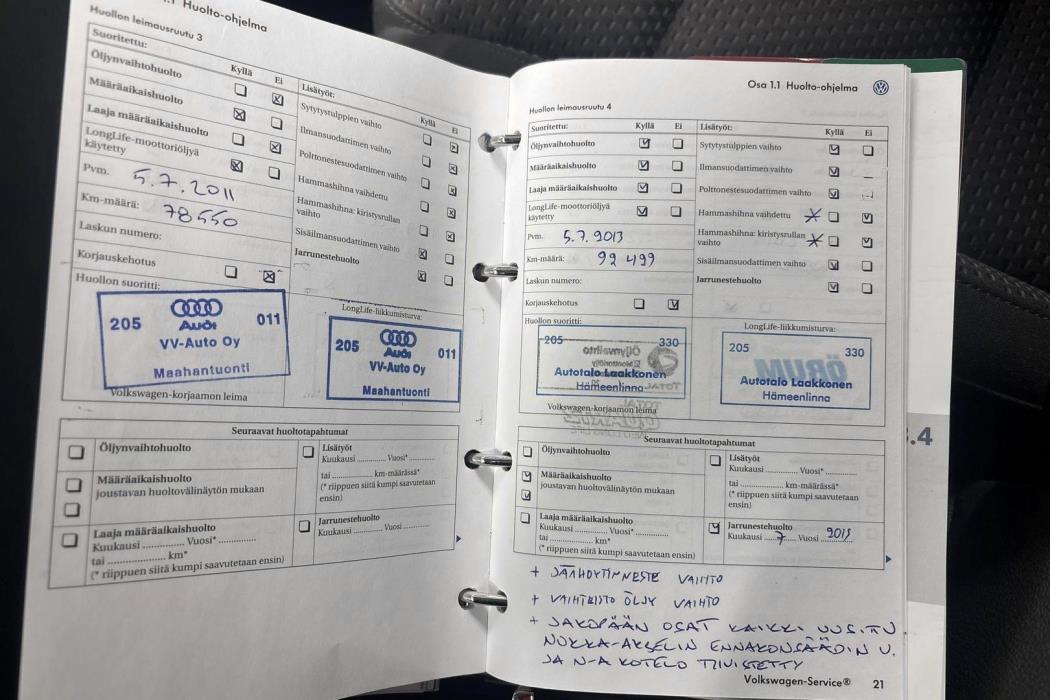 1.1 Huolto-ohjelma
Huollon leimausruutu 3
Suoritettu:
Kyllä
Ei
Öljynvaihtohuolto
Määräaikaishuolto
Laaja määräaikaishuolto
LongLife-moottoriöljyä
käytetty
Pvm. 5.7.2011
Km-määrä: 78550
Laskun numero:
Korjauskehotus
Huollon suoritti:
205 Audi 011
VV-Auto Oy
Maahantuonti
Volkswagen-korjaamon leima
Lisätyöt:
Kyllä
Ei
Sytytystulppien vaihto
Ilmansuodattimen vaihto
Polttonestesuodattimen vaihto
Hammashihna vaihdettu
Hammashihna: kiristysrullan
vaihto
Sisäilmansuodattimen vaihto
Jarrunestehuolto
LongLife-liikkumisturva:
205 Audi 011
VV-Auto Oy
Maahantuonti
Seuraavat huoltotapahtumat
Öljynvaihtohuolto
Määräaikaishuolto
joustavan huoltovälinäytön mukaan
Laaja määräaikaishuolto
Kuukausi .............. Vuosi* ..............
tai ................ km*
(* riippuen siitä kumpi saavutetaan ensin)
Lisätyöt
Kuukausi .............. Vuosi* ..............
tai .............. km-määrässä*
(* riippuen siitä kumpi saavutetaan
ensin)
Jarrunestehuolto
Kuukausi .............. Vuosi ..............
Osa 1.1 Huolto-ohjelma
Huollon leimausruutu 4
Suoritettu:
Kyllä
Ei
Öljynvaihtohuolto
Määräaikaishuolto
Laaja määräaikaishuolto
LongLife-moottoriöljyä
käytetty
Pvm. 5.7.2013
Km-määrä: 92 499
Laskun numero:
Korjauskehotus
Huollon suoritti:
205 330
Autotalo Laakkonen
Hämeenlinna
Volkswagen-korjaamon leima
Lisätyöt:
Kyllä
Ei
Sytytystulppien vaihto
Ilmansuodattimen vaihto
Polttonestesuodattimen vaihto
Hammashihna vaihdettu
Hammashihna: kiristysrullan
vaihto
Sisäilmansuodattimen vaihto
Jarrunestehuolto
LongLife-liikkumisturva:
205 330
Autotalo Laakkonen
Hämeenlinna
Seuraavat huoltotapahtumat
Öljynvaihtohuolto
Määräaikaishuolto
joustavan huoltovälinäytön mukaan
Laaja määräaikaishuolto
Kuukausi .............. Vuosi* ..............
tai ................ km*
(* riippuen siitä kumpi saavutetaan ensin)
Lisätyöt
Kuukausi .............. Vuosi* ..............
tai .............. km-määrässä*
(* riippuen siitä kumpi saavutetaan
ensin)
Jarrunestehuolto
Kuukausi 7 Vuosi 2015
+ JÄÄHDYTINNESTE VAIHTO
+ VAIHTEISTO ÖLJY VAIHTO
+ JAKOPÄÄN OSAT KAIKKI UUSITU
NOKKA-AKSELIN ENNAKONSÄÄDIN U.
JA N-A KOTELO TIIVISTETTY
Volkswagen-Service® 21
.4